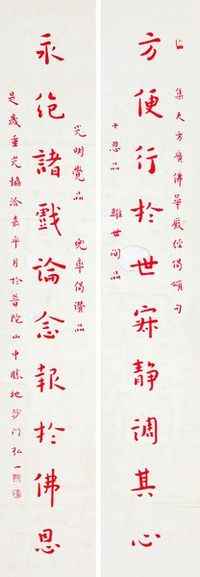 集大方廣佛華嚴經偈頌句
方便行於世寂靜調其心
十忍品 離世間品
光明覺品 兜率偈讚品
永絕諸戲論念報於佛恩
是歲重光協洽嘉平月於普陀山中勝地沙門弘一